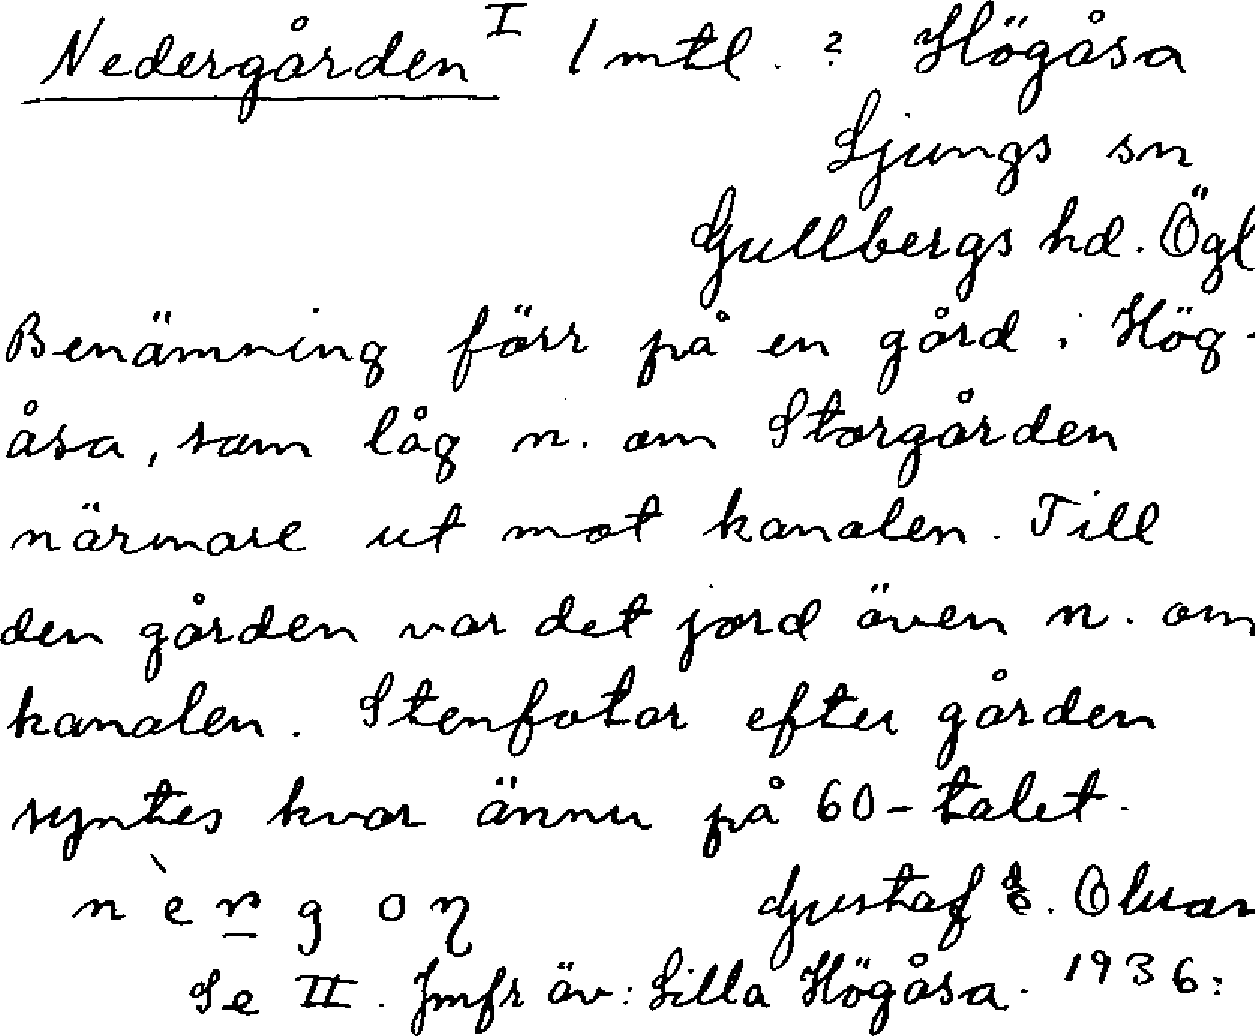 Nedergården I 1 mtl. ? Högåsa
Ljungs sn
Gullbergs hd. Ögl
Benämning förr på en gård i Hög-
åsa, som låg n. om Storgården
närmare ut mot kanalen. Till
den gården var det jord även n. om
kanalen. Stenfotar efter gården
syntes kvar ännu på 60-talet.
Gustaf Olsson
Se II. Jmfr äv: Lilla Högåsa. 1936: